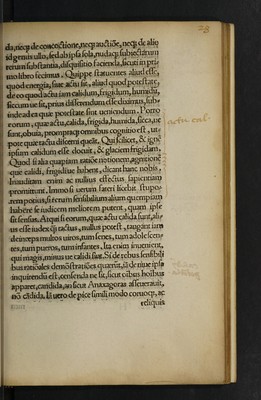 28
da, neqȝ de concoctione, neqȝ auctiōe, neqȝ de alio
id genus ullo, sed ab ipsa sola, nudaqȝ subiectarum
rerum substantia, disquisitio facienda, sicuti in pri
mo libro fecimus. Quippe statuentes aliud esse,
quod energia, siue actu sit, aliud quod potestate,
de eo quod actu iam calidum, frigidum, humidū,
siccum ue sit, prius disserendum esse diximus, sub
inde ad ea quæ potestate sunt ueniendum. Porro
eorum, quæ actu, calida, frigida, humida, sicca, ue
sunt, obuia, promptaqȝ omnibus cognitio est, ut
pote quæ tactu discerni queāt. Qui scilicet, & ignē
ipsum calidum esse docuit, & glaciem frigidam.
Quod si alia quapiam ratiōe notionem, agnitionē
que calidi, frigidiue habent, dicant hanc nobis,
enim ac nullius effectus sapientiam
promittunt. Immo si uerum fateri licebit stupo-
rem potius, si rerum sensibilium alium quempiam
habere se iudicem meliorem putent, quam ipse
sit sensus. Atqui si eorum, quæ actu calida sunt, ali-
us esse iudex qȝ tactus, nullus potest, tangant iam
deincepa multos uiros, tum senes, tum adolescen-
tes, tum pueros, tum infantes, Ita enim inuenient,
qui magis, minus ue calidi sint. Si de rebus sensibili
bus ratiōales demōstratiōes quærūt, iā de niue ipsa
inquirendū est, censenda ne sit, sicut oībus hoībus
apparet, candida, an sicut Anaxagoras asseuerauit,
nō cādida. Iā uero de pice simili modo coruoqȝ, ac
reliquis
actu cal.